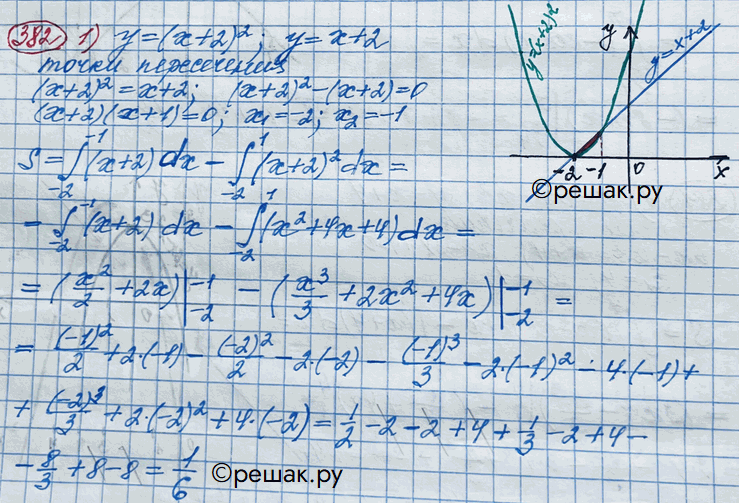 382 1) y=(x+2)²; y=x+2
точки пересечения
(x+2)²=x+2; (x+2)²-(x+2)=0
(x+2)(x+1)=0; x₁=-2; x₂=-1
S=∫₋₂⁻¹(x+2)dx-∫₋₂¹(x+2)²dx=
-∫₋₂⁻¹(x+2)dx-∫₋₂¹(x²+4x+4)dx=
=(x²/2+2x)|₋₂⁻¹-(x³/3+2x²+4x)|₋₂⁻¹=
=(-1)²/2+2·(-1)-(-2)²/2-2·(-2)-(-1)³/3-2·(-1)²-4·(-1)+
+(-2)³/3+2·(-2)²+4·(-2)=1/2-2-2+4+1/3-2+4-
-8/3+8-8=1/6
©решак.ру
y=(x+2)²
y
y=x+2
-2 -1 0 x
©решак.ру